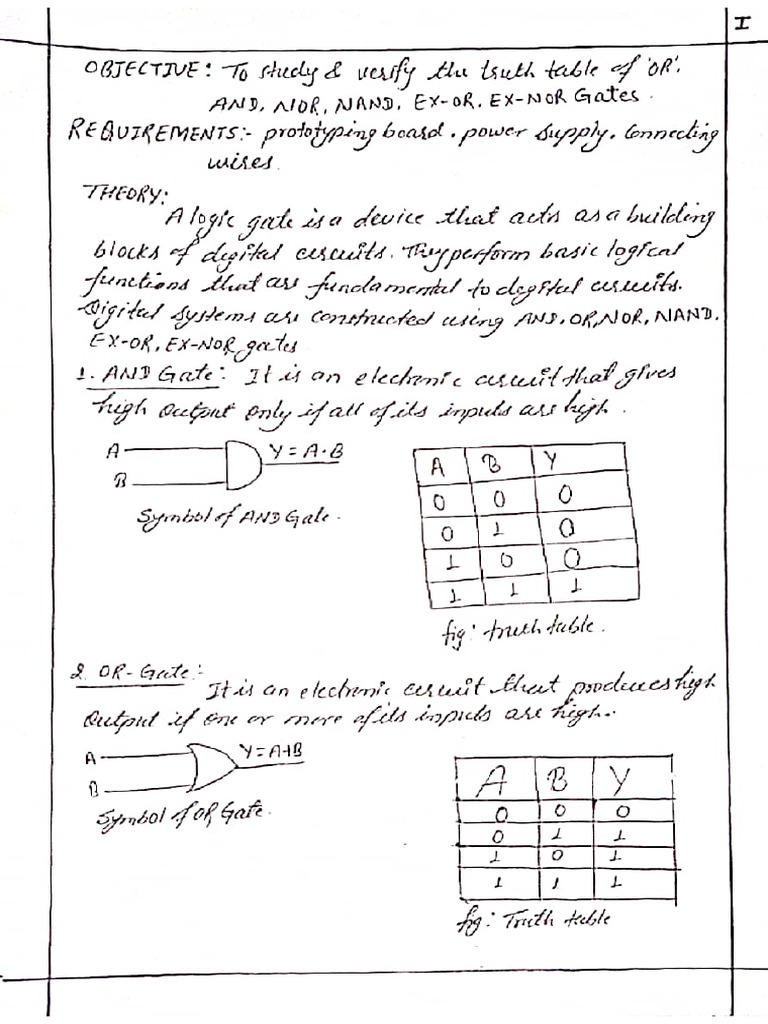 I
OBJECTIVE: To study & verify the truth table of 'OR',
AND, NOR, NAND, EX-OR, EX-NOR Gates.
REQUIREMENTS:- prototyping board, power supply, Connecting
wires.
THEORY:
A logic gate is a device that acts as a building
blocks of digital circuits. They perform basic logical
functions that are fundamental to digital circuits.
Digital systems are constructed using AND, OR, NOR, NAND,
EX-OR, EX-NOR gates
1. AND Gate: It is an electronic circuit that gives
high output only if all of its inputs are high.
A
B
Y = A·B
Symbol of AND Gate.
A B Y
0 0 0
0 1 0
1 0 0
1 1 1
fig: truth table.
2. OR-Gate:-
It is an electronic circuit that produces high
Output if one or more of its inputs are high.
A
B
Y=A+B
Symbol of OR Gate.
A B Y
0 0 0
0 1 1
1 0 1
1 1 1
fig: Truth table